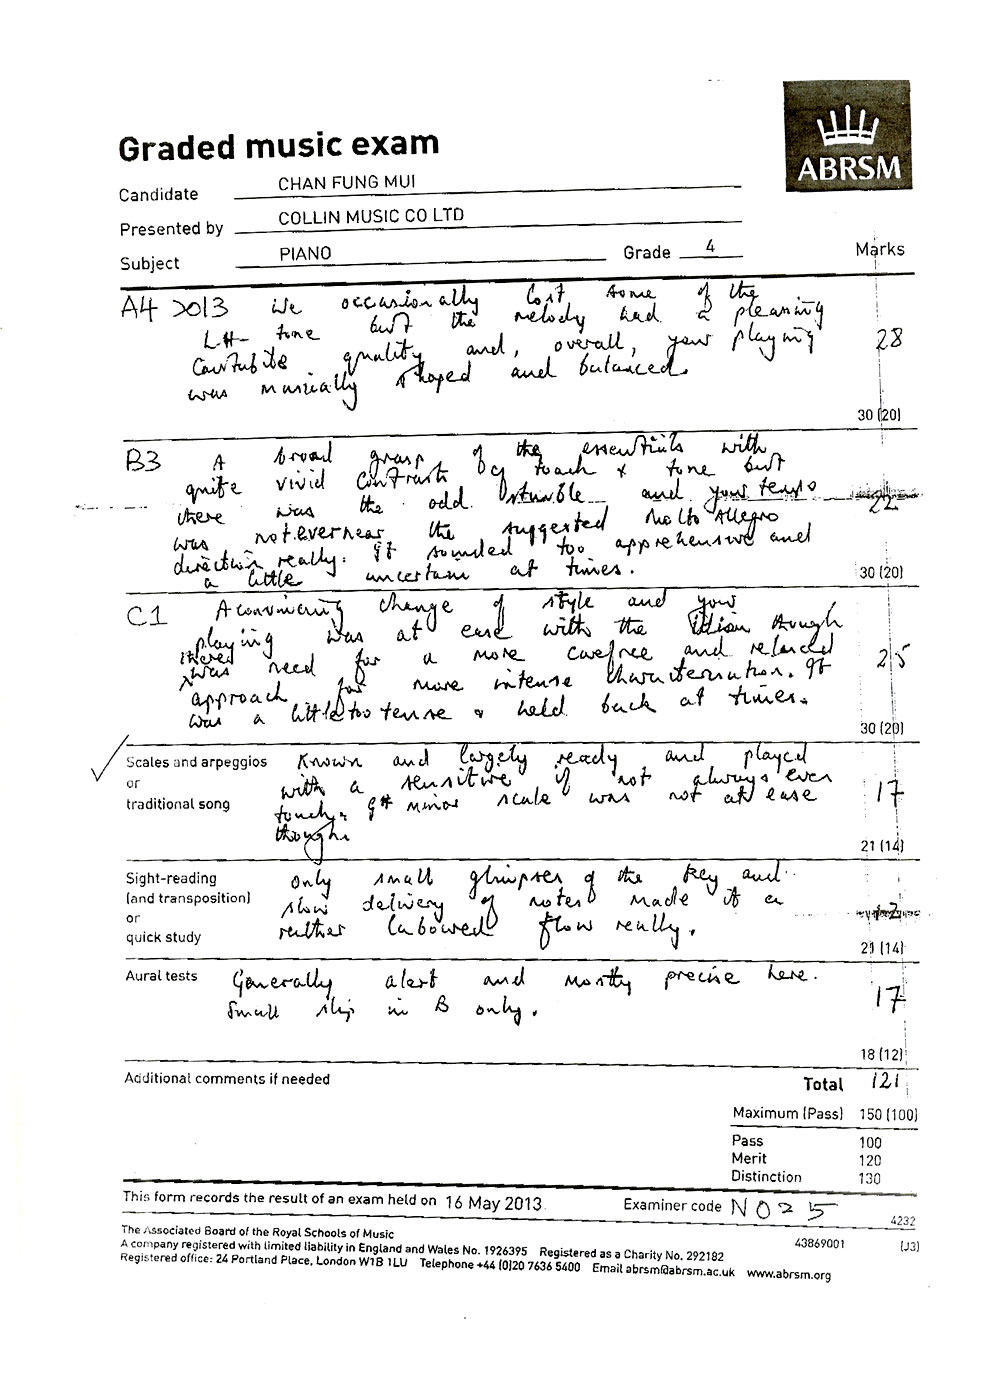 ABRSM
Graded music exam
Candidate CHAN FUNG MUI
Presented by COLLIN MUSIC CO LTD
Subject PIANO Grade 4 Marks
A4 2013 We occasionally lost some of the
LH tone but the melody had a pleasing
cantabile quality and, overall, your playing 28
was musically shaped and balanced.
30 (20)
B3 A broad grasp of the essentials with
quite vivid contrasts of touch & tone but
there was the odd stumble and your tempo 22
was not ever near the suggested Molto Allegro
direction really. It sounded too apprehensive and
a little uncertain at times. 30 (20)
C1 A convincing change of style and your
playing was at ease with the idiom though
there was need for a more carefree and relaxed 25
approach for more intense characterisation. It
was a little too tense & held back at times.
30 (20)
Scales and arpeggios Known and largely ready and played
or with a sensitive if not always even
traditional song touch. g# minor scale was not at ease 17
though.
21 (14)
Sight-reading Only small glimpses of the key and
(and transposition) slow delivery of notes made it a
or rather laboured flow really. 12
quick study
21 (14)
Aural tests Generally alert and mostly precise here.
Small slip in B only. 17
18 (12)
Additional comments if needed Total 121
Maximum (Pass) 150 (100)
Pass 100
Merit 120
Distinction 130
This form records the result of an exam held on 16 May 2013 Examiner code N025
4232
The Associated Board of the Royal Schools of Music 43869001 (J3)
A company registered with limited liability in England and Wales No. 1926395 Registered as a Charity No. 292182
Registered office: 24 Portland Place, London W1B 1LU Telephone +44 (0)20 7636 5400 Email abrsm@abrsm.ac.uk www.abrsm.org